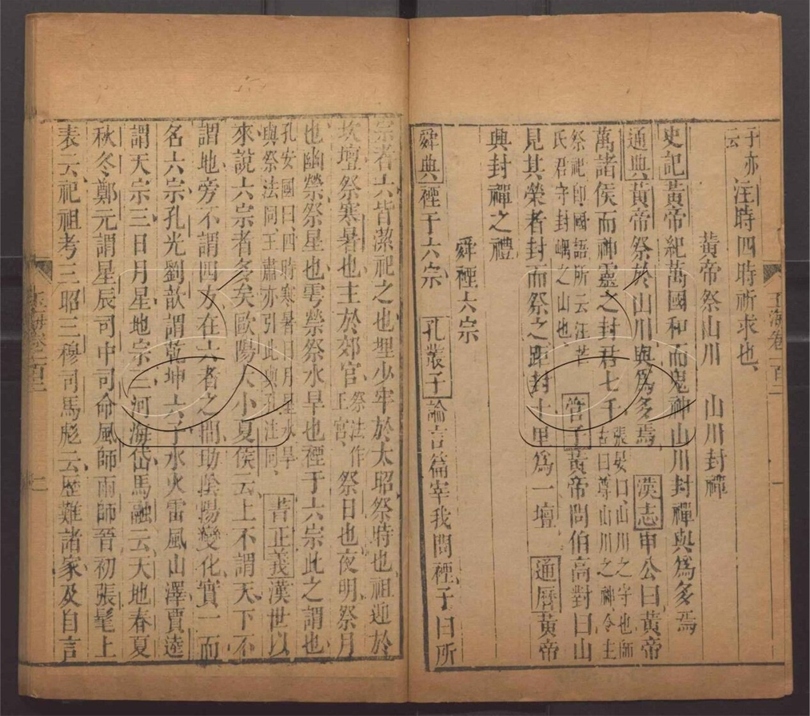 于亦云注時四時祈求也
黃帝祭山川　山川封禪
史記黃帝紀萬國和而鬼神山川封禪與爲多焉
通典黃帝祭於山川與爲多焉　漢志申公曰黃帝
萬諸侯而神靈之封君七千張晏曰山川之守也師古曰尊山川之神令主
祭祀卽國語所云汪芒氏君守封嵎之山也　管子黃帝問伯高對曰山
見其榮者封而祭之距封十里爲一壇　通曆黃帝
興封禪之禮
舜禋六宗
舜典禋于六宗　孔叢子論言篇宰我問禋于曰所
宗者六皆潔祀之也埋少牢於太昭祭時也祖迎於
坎壇祭寒暑也主於郊宮祭法作王宮祭日也夜明祭月
也幽禜祭星也雩禜祭水旱也禋于六宗此之謂也
孔安國曰四時寒暑日月星水旱與祭法同王肅亦引此與孔注同　書正義漢世以
來說六宗者多矣歐陽大小夏侯云上不謂天下不
謂地旁不謂四方在六者之間助陰陽變化實一而
名六宗孔光劉歆謂乾坤六子水火雷風山澤賈逵
謂天宗三日月星地宗三河海岱馬融云天地春夏
秋冬鄭元謂星辰司中司命風師雨師晉初張髦上
表云祀祖考三昭三穆司馬彪云歷難諸家及自言